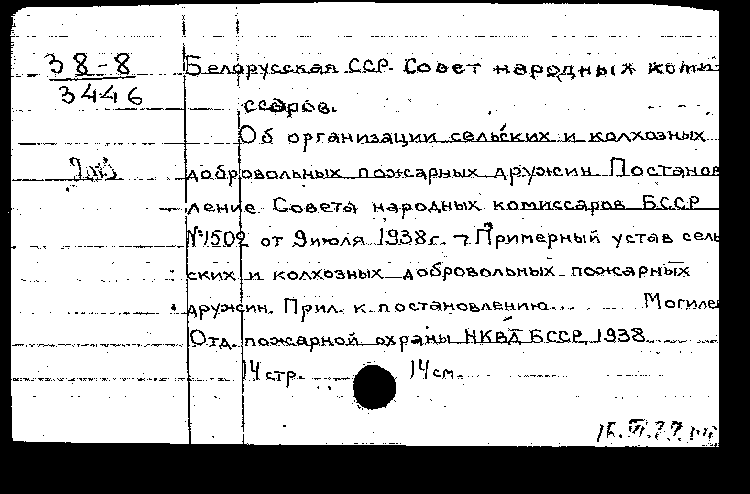 38-8
3446
Белорусская ССР. Совет народных коми-
ссаров.
Об организации сельских и колхозных
добровольных пожарных дружин. Постанов
ление Совета народных комиссаров БССР
№1502 от 9 июля 1938 г. → Примерный устав сель
ских и колхозных добровольных пожарных
дружин. Прил. к постановлению... Могилев
Отд. пожарной охраны НКВД БССР, 1938
14 стр. 14 см.